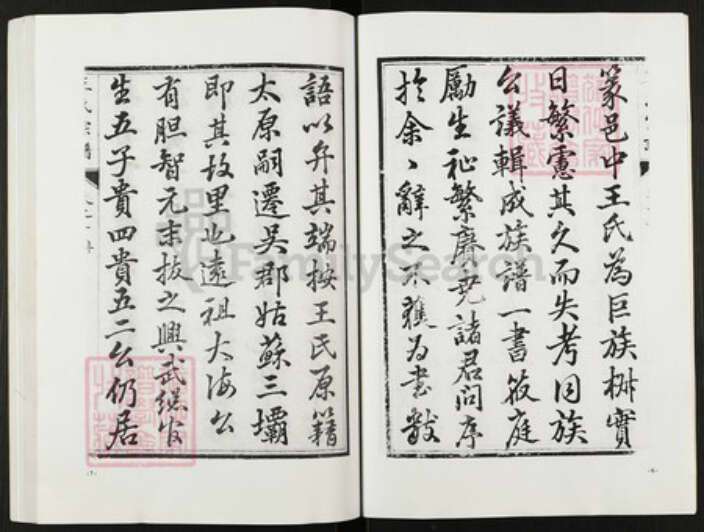 篆邑中王氏為巨族椒實
日繁慮其久而失考因族
公議輯成族譜一書筱庭
勵生祉繁廉堯諸君問序
於余、辭之不獲為書數
語以弁其端按王氏原籍
太原嗣遷吳郡姑蘇三壩
即其故里也遠祖大海公
有胆智元末拔之興武総官
生五子貴四貴五二公仍居
FamilySearch